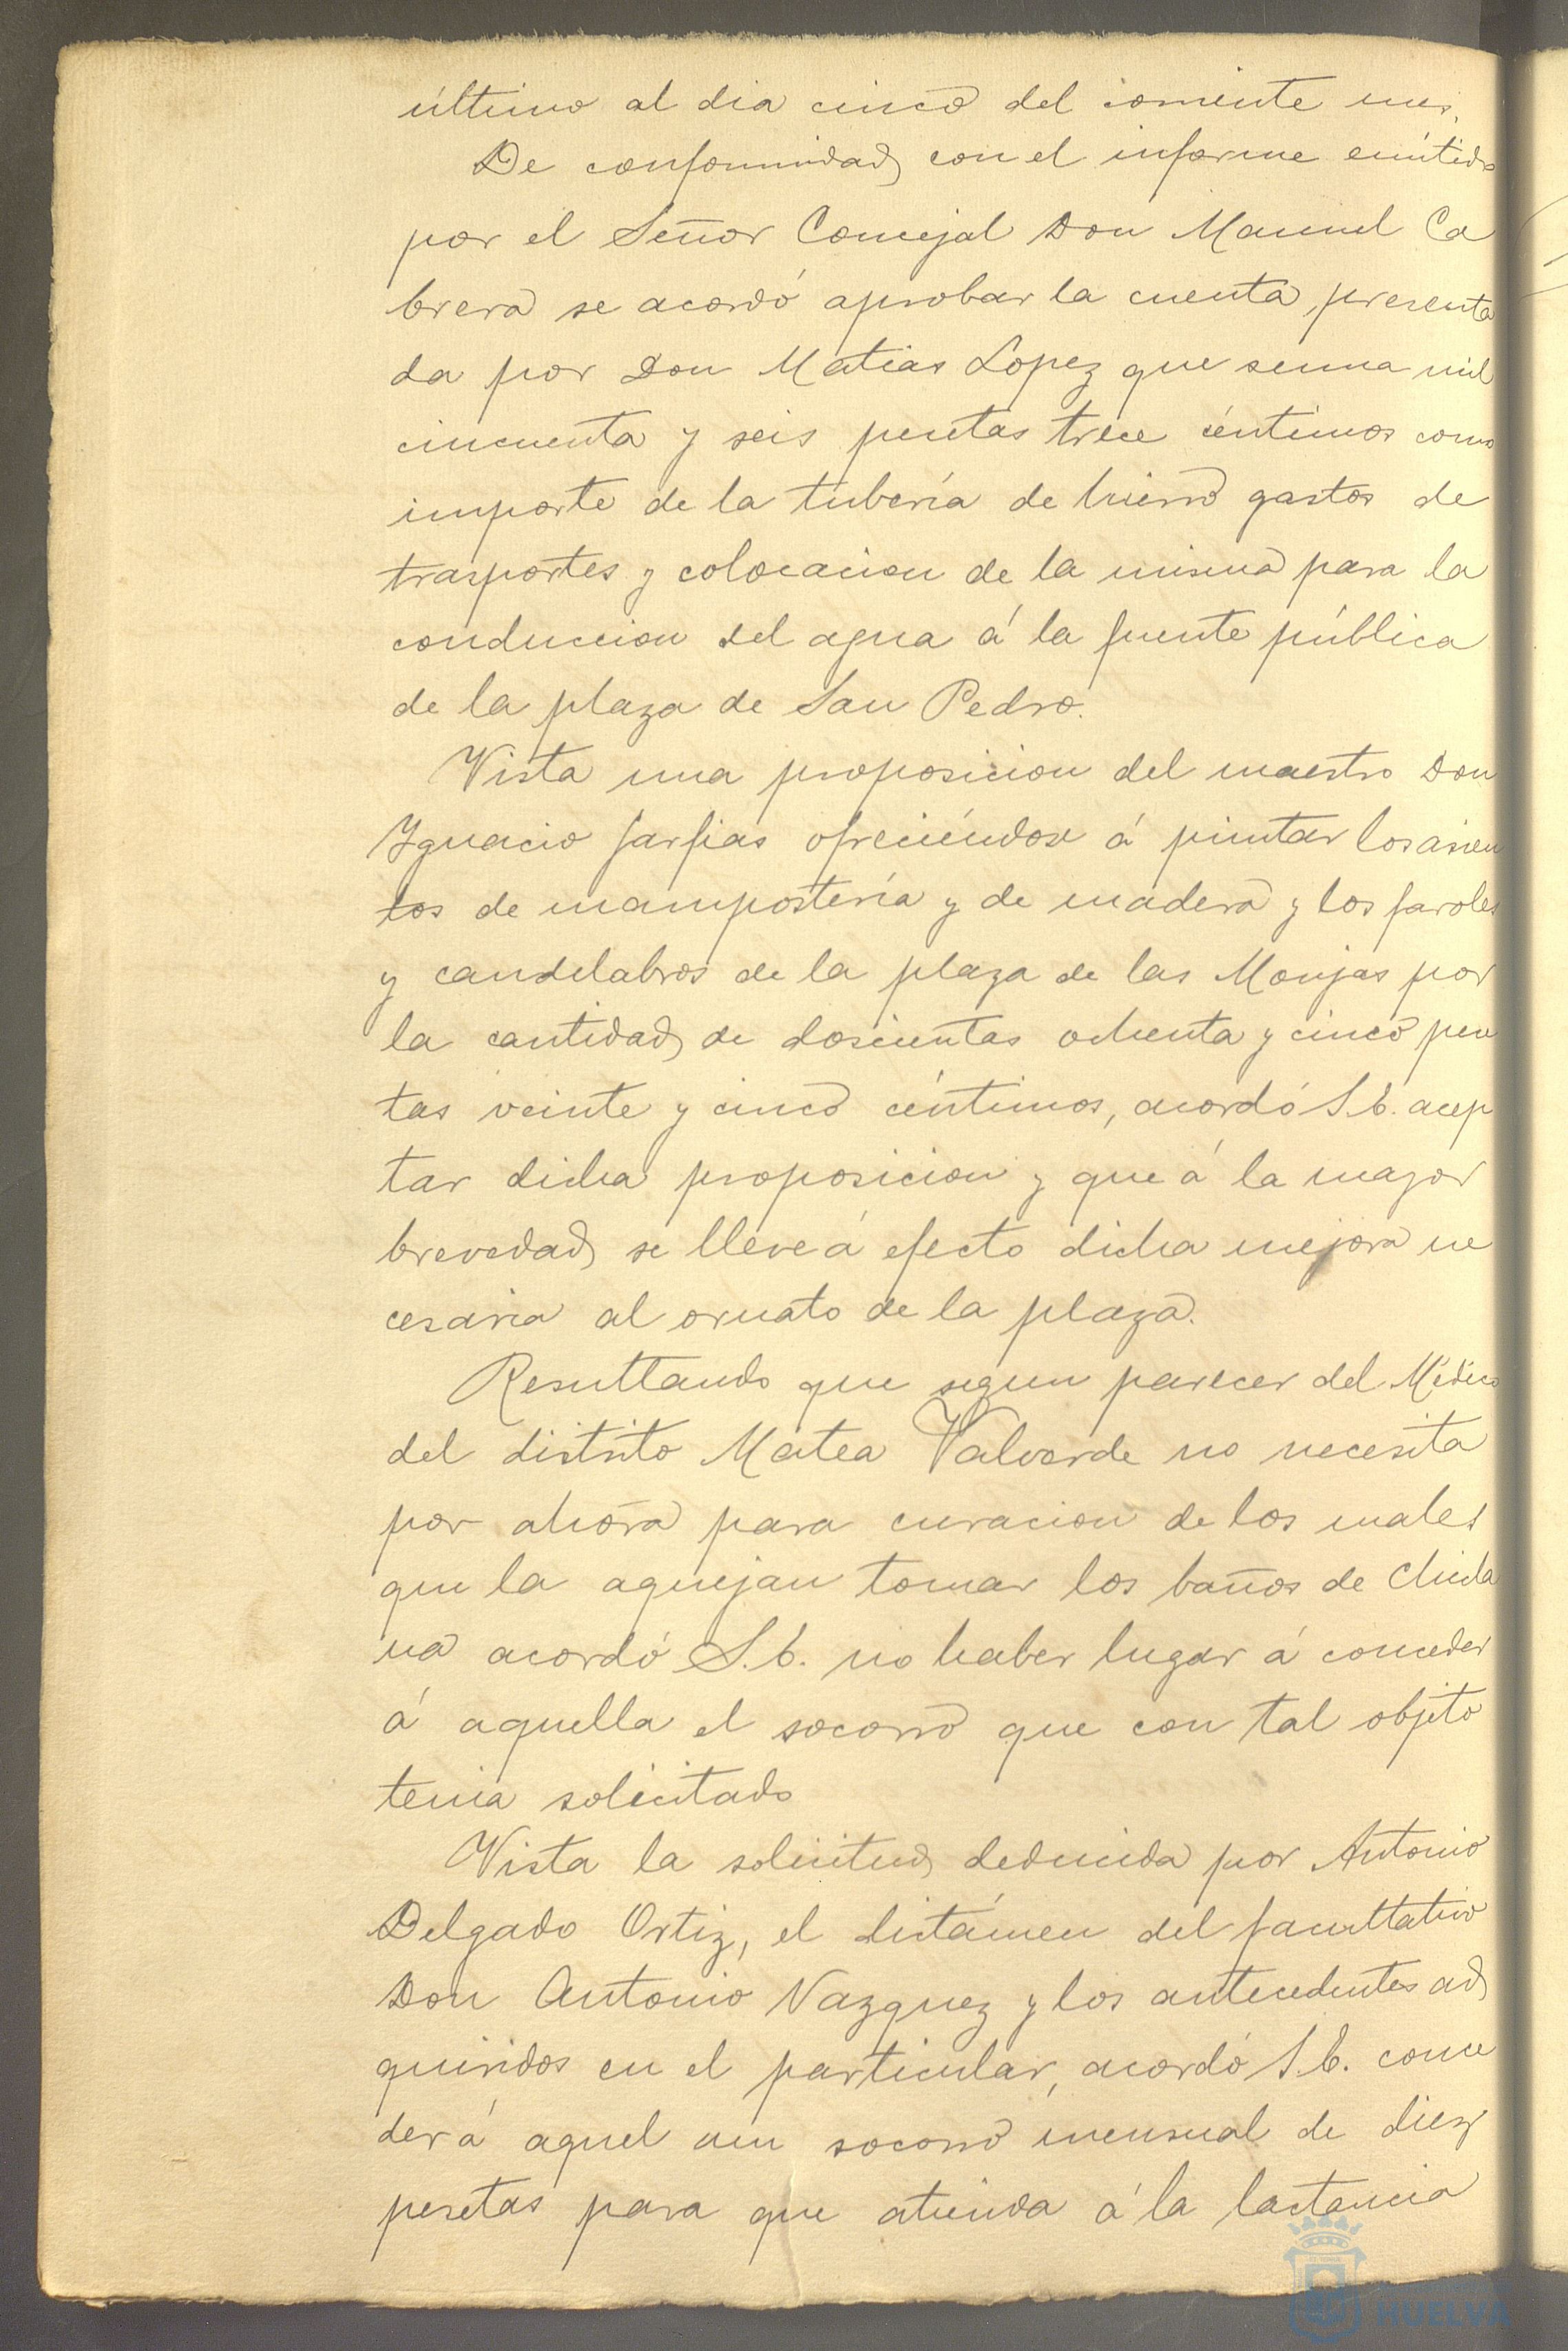 último al dia cinco del corriente mes.
De conformidad con el informe emitido
por el Señor Concejal Don Manuel Ca
brera se acordó aprobar la cuenta presenta
da por Don Matias Lopez que suma mil
cincuenta y seis pesetas trece céntimos como
importe de la tubería de hierro gastos de
trasportes y colocacion de la misma para la
conduccion del agua á la fuente pública
de la plaza de San Pedro.
Vista una proposicion del maestro Don
Ygnacio farfias ofreciéndose á pintar los asien
tos de mampostería y de madera y los faroles
y candelabros de la plaza de las Monjas por
la cantidad de doscientas ochenta y cinco pese
tas veinte y cinco céntimos, acordó S.E. acep
tar dicha proposicion y que á la mayor
brevedad se lleve á efecto dicha mejora ne
cesaria al ornato de la plaza.
Resultando que segun parecer del Médico
del distrito Matea Valverde no necesita
por ahora para curacion de los males
que la aquejan tomar los baños de Chicla
na acordó S.E. no haber lugar á conceder
á aquella el socorro que con tal objeto
tenia solicitado
Vista la solicitud deducida por Antonio
Delgado Ortiz, el dictámen del facultativo
Don Antonio Vazquez y los antecedentes ad
quiridos en el particular, acordó S.E. conce
der á aquel un socorro mensual de diez
pesetas para que atienda á la lactancia
HUELVA